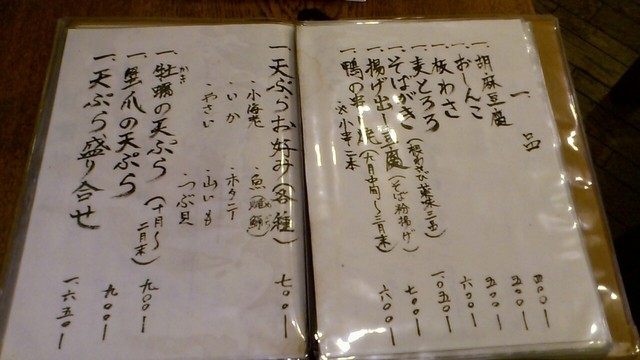 一品
一、胡麻豆腐 四〇〇ー
一、おしんこ 五〇〇ー
一、板わさ 五〇〇ー
一、麦とろろ 六〇〇ー
一、そばがき 一、〇五〇ー
一、揚げ出し豆腐(そば粉揚げ) 七〇〇ー
一、鴨の串焼(九月中旬〜三月末) 六〇〇ー
※小串二本
一、天ぷらお好み(各種) 七〇〇ー
・小海老 ・魚
・いか ・ホタテ
・やさい ・山いも
・つぶ貝
一、牡蠣の天ぷら(十月〜二月末) 九〇〇ー
かき
一、蟹爪の天ぷら 九〇〇ー
一、天ぷら盛り合せ 一、六五〇ー